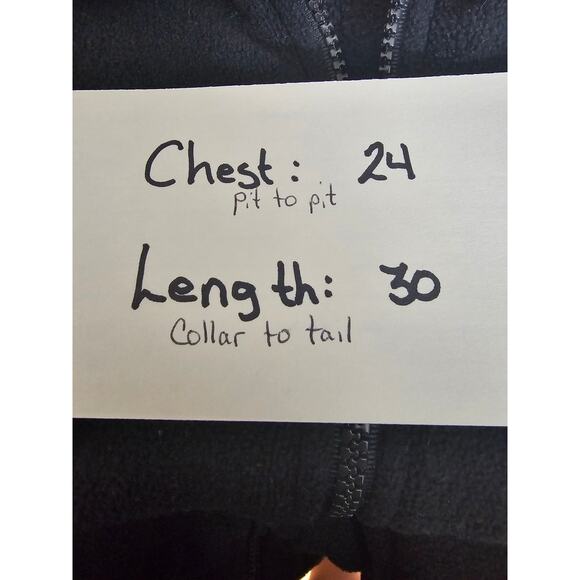 Chest: 24
pit to pit
Length: 30
Collar to tail